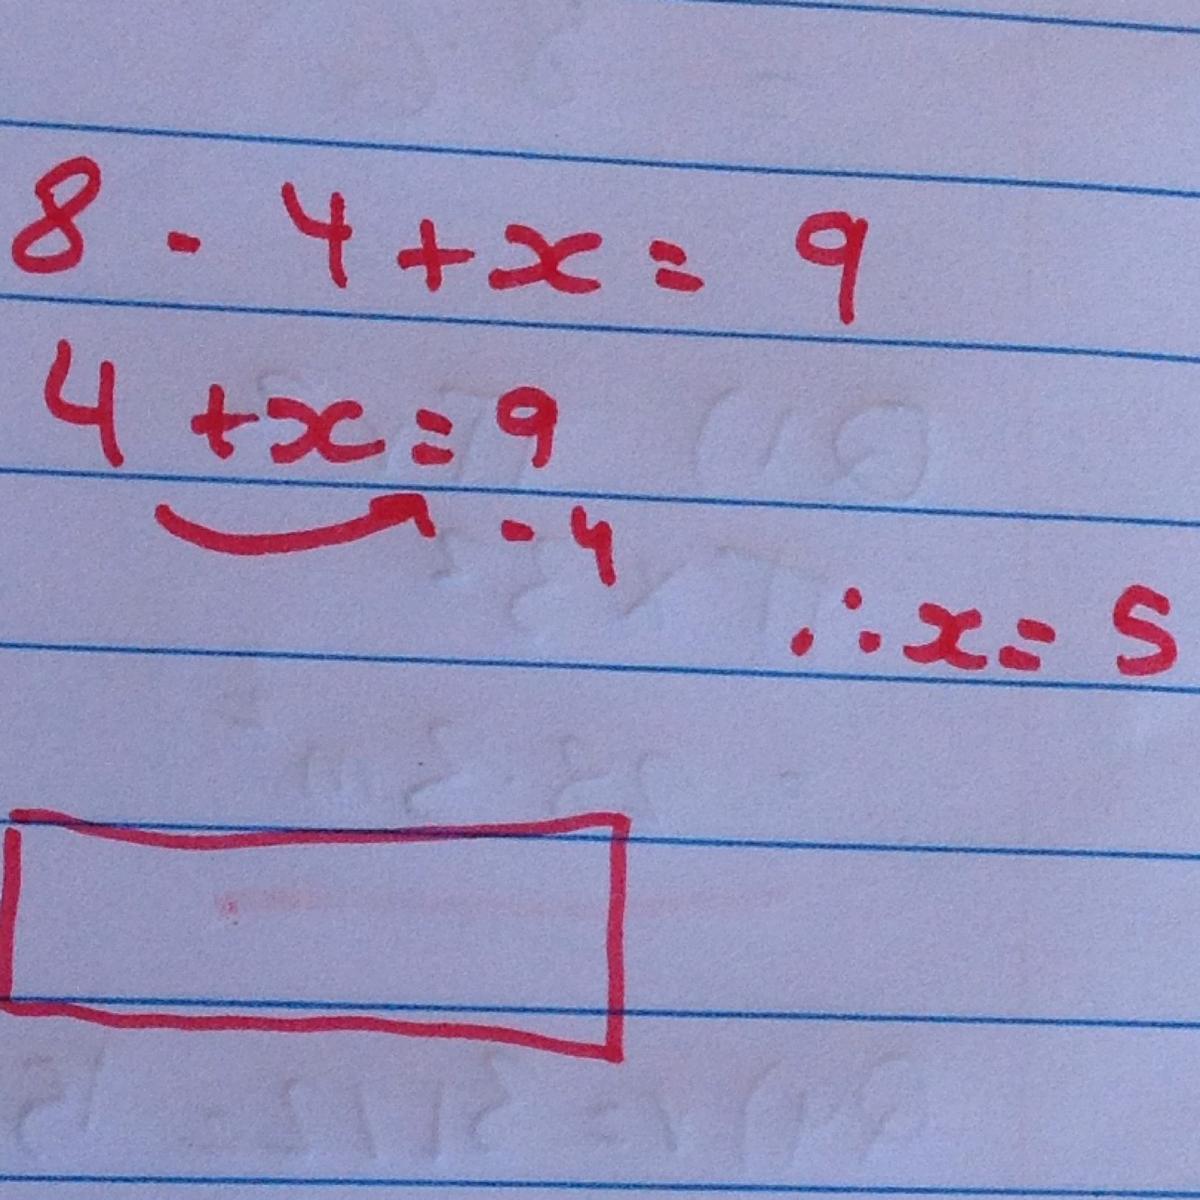 8 - 4 + x = 9
4 + x = 9
- 4
∴ x = 5